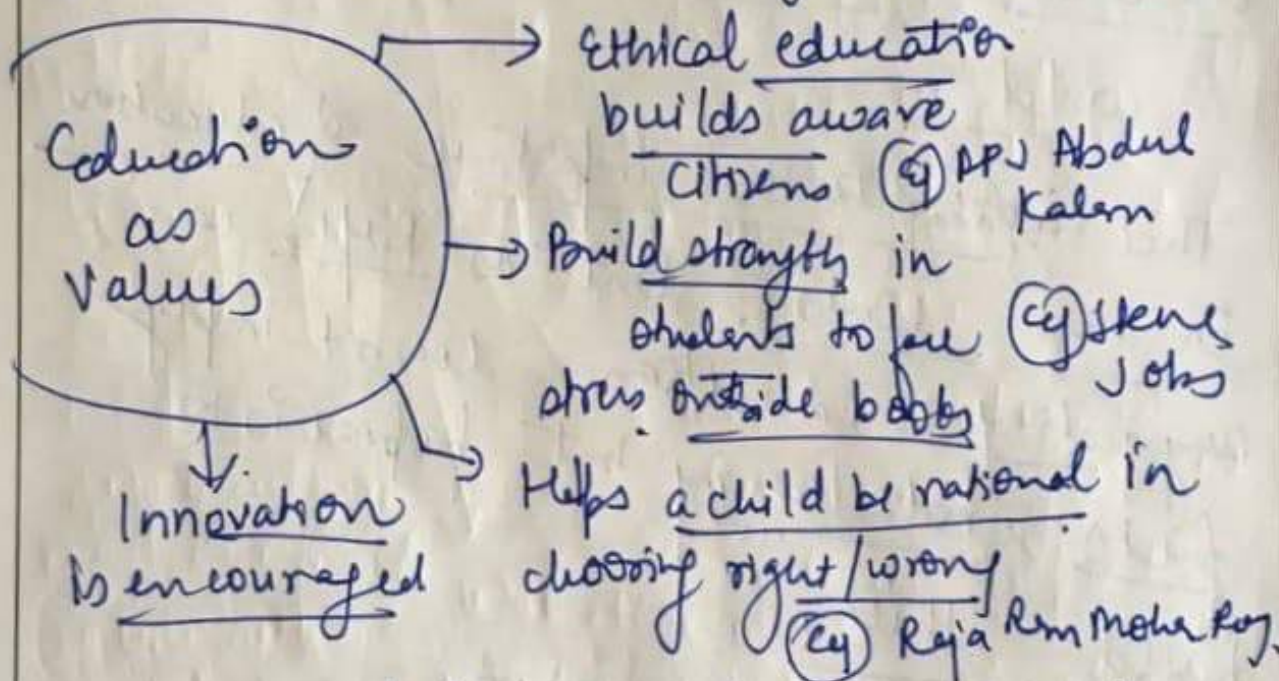 Education
as
Values
Ethical education
builds aware
Citizens eg APJ Abdul
Kalam
Build strength in
students to face eg Steve
Jobs
stress outside books
Helps a child be rational in
choosing right/wrong
eg Raja Ram Mohan Roy.
Innovation
is encouraged